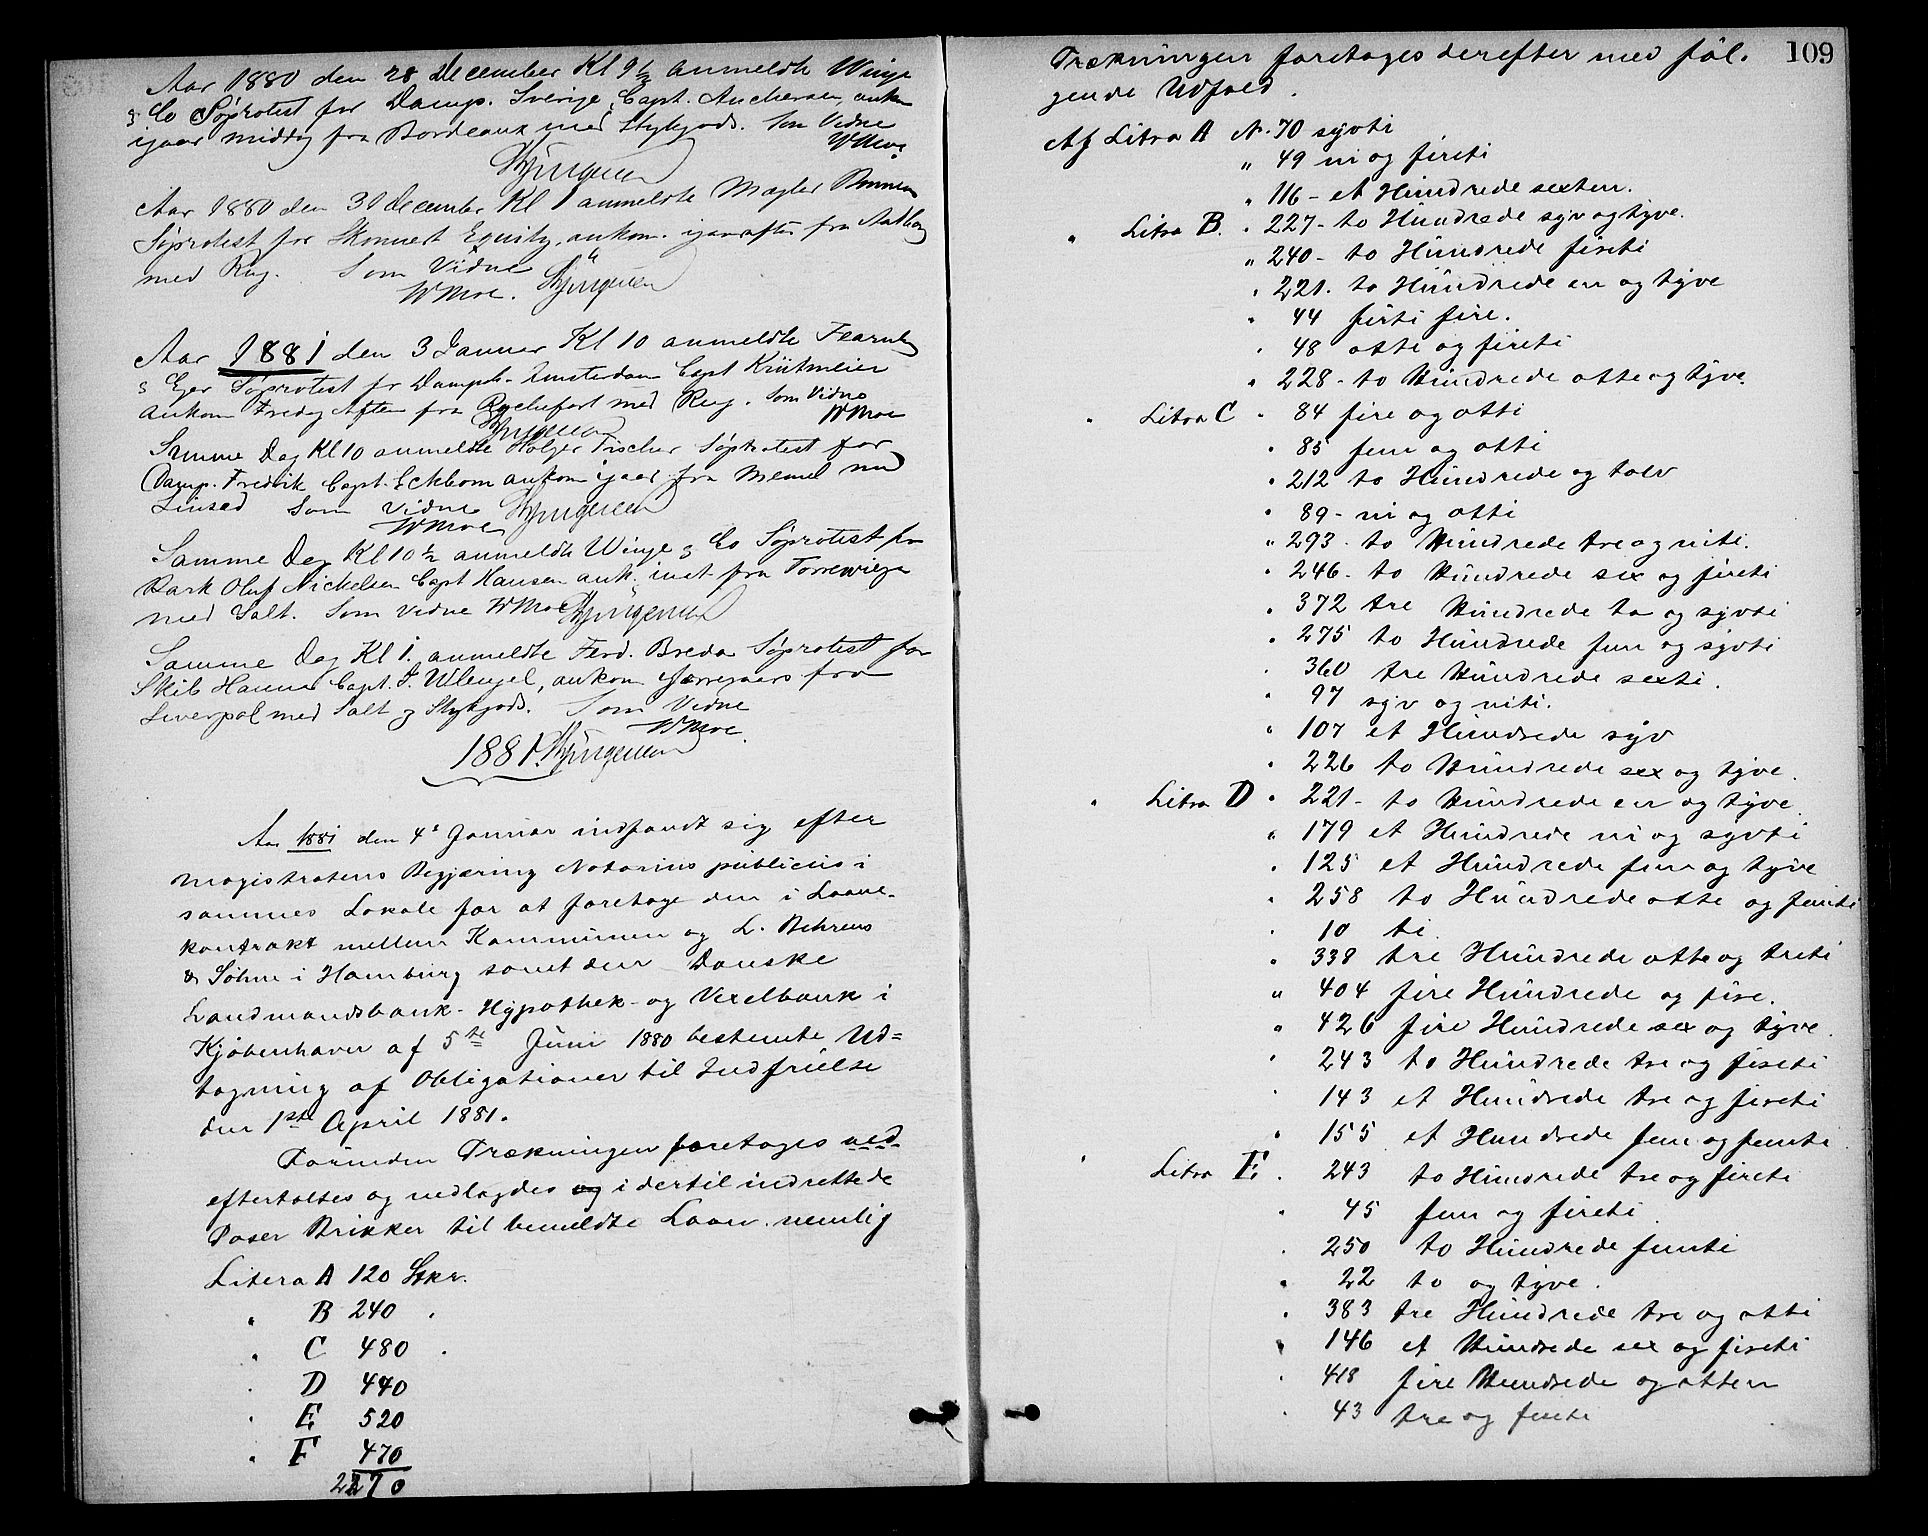 Aar 1880 den 28 December Kl 9½ anmeldte Winge
& Co Søprotest for Damp. Sverige, Capt. Anchersen, ankom
igaar middag fra Bordeaux med Stykgods. Som Vidne
WMoe
Aar 1880 den 30 december Kl 1 anmeldte Mægler
Søprotest for Skonnert Equity, ankom. igaaraftes fra Aalborg
med Rug. Som Vidne
WMoe.
Aar 1881 den 3 Januar Kl 10 anmeldte Fearnley
& Eger Søprotest for Dampsk. Amsterdam Capt
ankom Fredag Aften fra Rochefort med Rug. Som Vidne
WMoe
Samme Dag Kl 10 anmeldte Holger Fischer Søprotest for
Damp. Fredrik Capt. Eckbom ankom igaar fra Memel med
Linsæd Som Vidne
WMoe
Samme Dag Kl 10½ anmeldte Winge & Co Søprotest for
Bark Oluf Nickelsen Capt Hansen ank. fra Torrevieja
med Salt. Som Vidne WMoe
Samme Dag Kl 1. anmeldte Ferd. Breda Søprotest for
Skib Hanna Capt. ankom forregaars fra
Liverpol med Salt & Stykgods. Som Vidne
WMoe.
1881.
Aar 1881 den 4de Januar indfandt sig efter
Magistratens Begjæring Notarius publicus i
sammes Lokale for at foretage den i Laane-
kontrakt mellem Kommunen og L. Behrens
& Söhne i Hamburg samt den Danske
Landmandsbank- Hypothek- og Vexelbank i
Kjøbenhavn af 5te Juni 1880 bestemte Ud=
tagning af Obligationer til Indfrielse
den 1ste April 1881.
Forinden Trækningen foretages ned-
eftertaltes og nedlagdes og i dertil indrettede
Poser Brikker til bemeldte Laan. nemlig
Litera A 120 Stkr.
" B 240 "
" C 480 "
" D 440
" E 520
" F 470
2270
109
Trækningen foretages derefter med føl.
gende Udfald.
Af Litra A N. 70 syvti
" 49 ni og fireti
" 116 - et Hundrede sexten.
" Litra B. " 227 - to Hundrede syv og tyve.
" 240 - to Hundrede fireti
" 221. to Hundrede en og tyve
" 44 firti fire.
" 48 otti og fireti
" 228 - to Hundrede otte og tyve.
" Litra C " 84 fire og otti
" 85 fem og otti
" 212 to Hundrede og tolv
" 89 - ni og otti
" 293 - to Hundrede tre og niti.
" 246 - to Hundrede sex og fireti
" 372 tre Hundrede to og syvti
" 275 to Hundrede fem og syvti
" 360 tre Hundrede sexti.
" 97 syv og niti.
" 107 et Hundrede syv
" 226 to Hundrede sex og tyve.
" Litra D " 221 - to Hundrede en og tyve
" 179 et Hundrede ni og syvti
" 125 et Hundrede fem og tyve
" 258 to Hundrede otte og femti
" 10 ti
" 338 tre Hundrede otte og treti
" 404 fire Hundrede og fire.
" 426 fire Hundrede sex og tyve.
" 243 to Hundrede tre og fireti
" 143 et Hundrede tre og fireti
" 155 et Hundrede fem og femti
" Litra E. " 243 to Hundrede tre og fireti
" 45 fem og fireti
" 250 to Hundrede femti
" 22 to og tyve.
" 383 tre Hundrede tre og otti
" 146 et Hundrede sex og fireti
" 418 fire Hundrede og atten
" 43 tre og